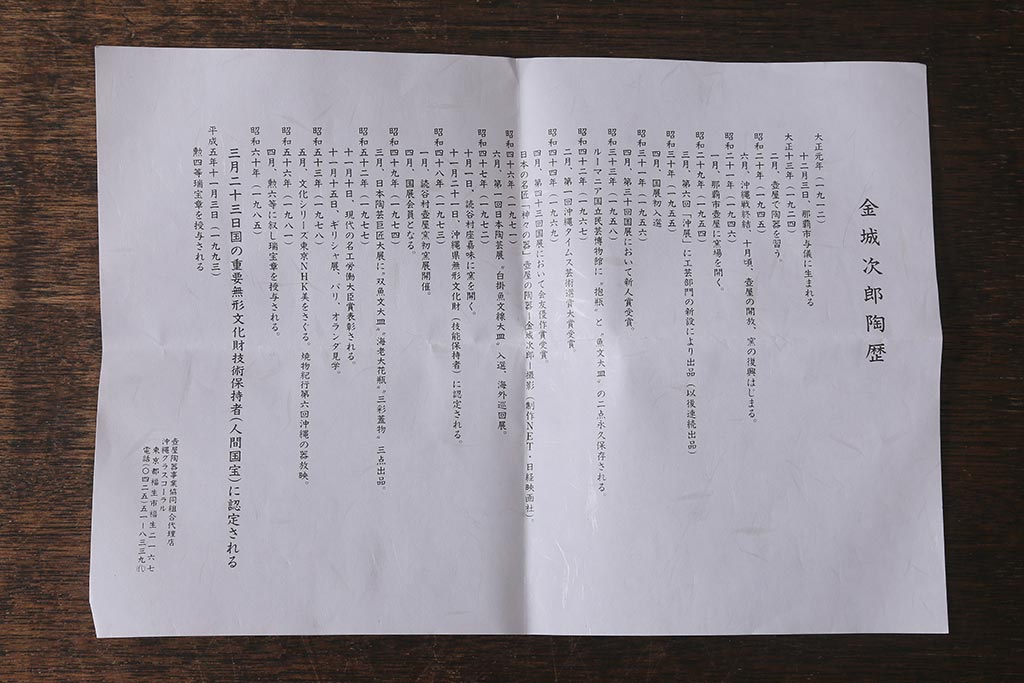 金城次郎陶歴
大正元年(一九一二)
十二月三日、那覇市与儀に生まれる
大正十三年(一九二四)
二月、壺屋で陶器を習う。
昭和二十年(一九四五)
六月、沖縄戦終結、十月頃、壺屋の開放、窯の復興はじまる。
昭和二十一年(一九四六)
一月、那覇市壺屋に窯場を開く。
昭和二十九年(一九五四)
三月、第六回「沖展」に工芸部門の新設により出品(以後連続出品)
昭和三十年(一九五五)
四月、国展初入選
昭和三十一年(一九五六)
四月、第三十回国展において新人賞受賞。
昭和三十三年(一九五八)
ルーマニア国立民芸博物館に〝抱瓶〟と〝魚文大皿〟の二点永久保存される。
昭和四十二年(一九六七)
二月、第一回沖縄タイムス芸術選賞大賞受賞。
昭和四十四年(一九六九)
四月、第四十三回国展において会友優作賞受賞。
日本の名匠「神々の器」壺屋の陶器—金城次郎—撮影(制作NET・日経映画社)。
昭和四十六年(一九七一)
六月、第一回日本陶芸展。〝白掛魚文線大皿〟入選、海外巡回展。
昭和四十七年(一九七二)
十一月、読谷村座喜味に窯を開く。
十一月二十一日、沖縄県無形文化財(技能保持者)に認定される。
昭和四十八年(一九七三)
一月、読谷村壺屋窯初窯展開催。
四月、国展会員となる。
昭和四十九年(一九七四)
三月、日本陶芸巨匠大展に〝双魚文大皿〟〝海老大花瓶〟〝三彩蓋物〟三点出品。
昭和五十二年(一九七七)
十一月十日、現代の名工労働大臣賞表彰される。
十一月十五日、ギリシャ展、パリ、オランダ見学。
昭和五十三年(一九七八)
五月、文化シリーズ東京NHK美をさぐる。焼物紀行第六回沖縄の器放映。
昭和五十六年(一九八一)
四月、勲六等に叙し瑞宝章を授与される。
昭和六十年(一九八五)
三月二十三日国の重要無形文化財技術保持者(人間国宝)に認定される
平成五年十一月三日(一九九三)
勲四等瑞宝章を授与される
壺屋陶器事業協同組合代理店
沖縄グラスコーラル
東京都福生市福生二一六七
電話(〇四二五)五一—八三三九㈹